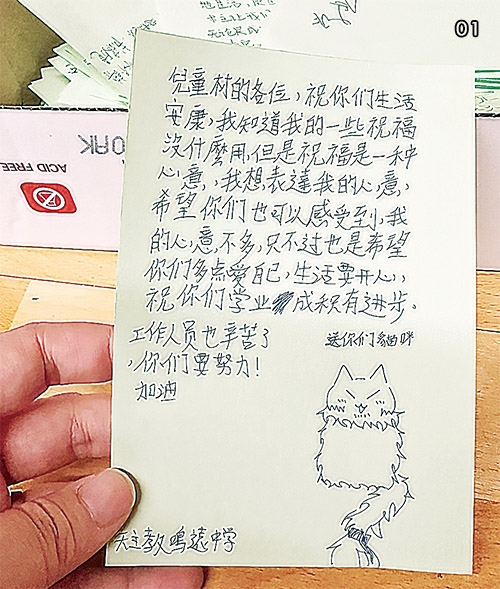 01
兒童村的各位，祝你们生活
安康，我知道我的一些祝福
沒什麼用，但是祝福是一种
心意，我想表達我的心意，
希望你们也可以感受到，我
的心意不多，只不过也是希望
你们多点爱自己，生活要开心，
祝你们学业成积有进步。
工作人员也辛苦了
，你们要努力！
加油
送你们貓咪
天主教鳴遠中学
ACID FREE